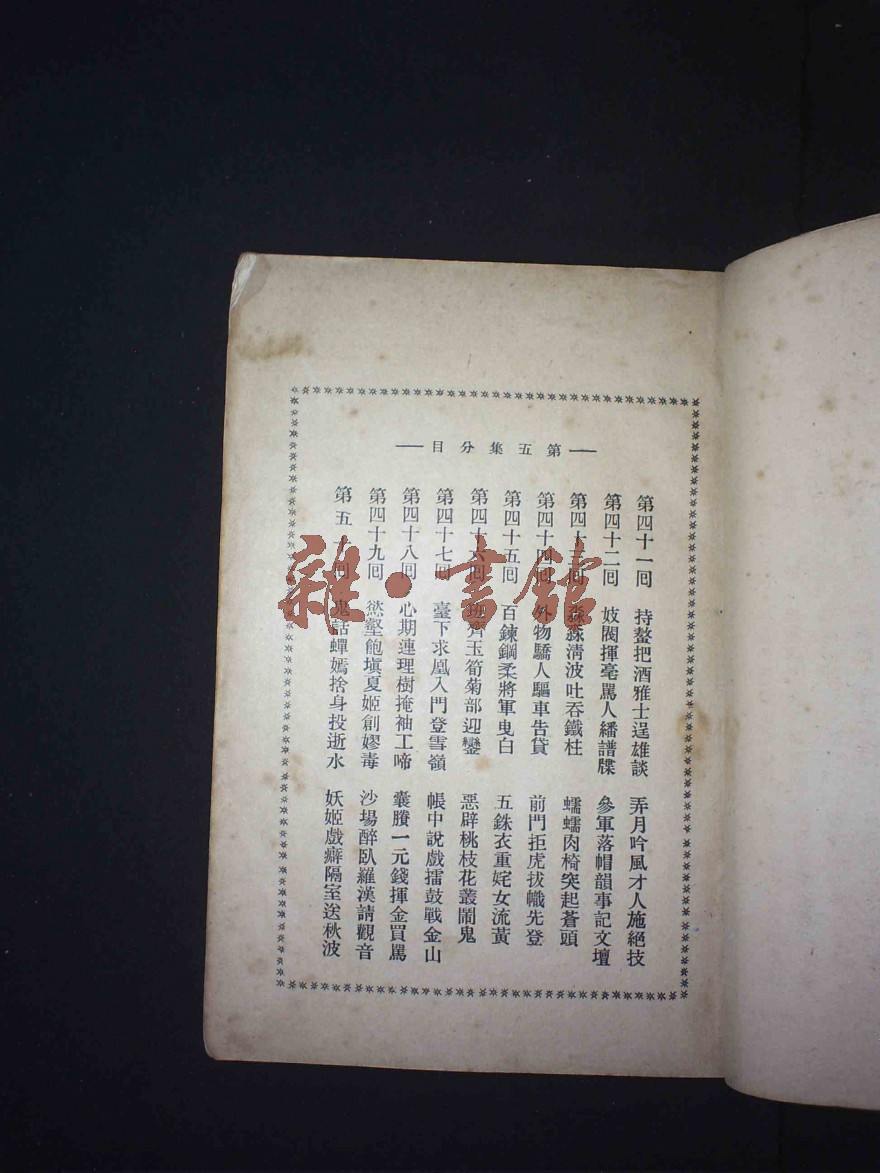 第五集分目
第四十一回 持螯把酒雅士逞雄談 弄月吟風才人施絕技
第四十二回 妓閣揮毫罵人繙譜牒 參軍落帽韻事記文壇
第四十三回 淼淼清波吐吞鐵柱 蠕蠕肉椅突起蒼頭
第四十四回 外物驕人驅車告貸 前門拒虎拔幟先登
第四十五回 百鍊鋼柔將軍曳白 五銖衣重姹女流黃
第四十六回 齊玉筍菊部迎鑾 惡辟桃枝花叢鬧鬼
第四十七回 臺下求凰入門登雪嶺 帳中說戲擂鼓戰金山
第四十八回 心期連理樹掩袖工啼 囊賸一元錢揮金買罵
第四十九回 慾壑飽塡夏姬創嫪毒 沙場醉臥羅漢請觀音
第五十回 鬼話蟬嫣捨身投逝水 妖姬戲癖隔室送秋波
雜·書館